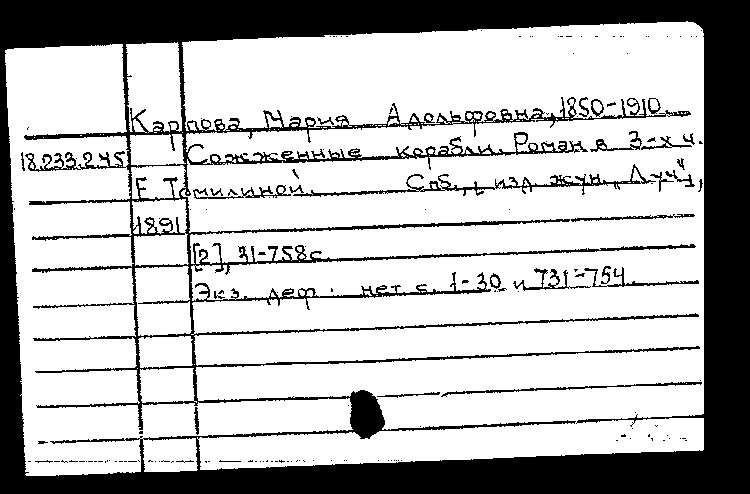 Карпова, Мария Адольфовна, 1850-1910.
18.233.245 Сожженные корабли. Роман в 3-х ч.
Е. Томилиной. Спб., изд. жун. „Луч“,
1891
[2], 31-758 с.
Экз. деф.: нет с. 1-30 и 731-754.